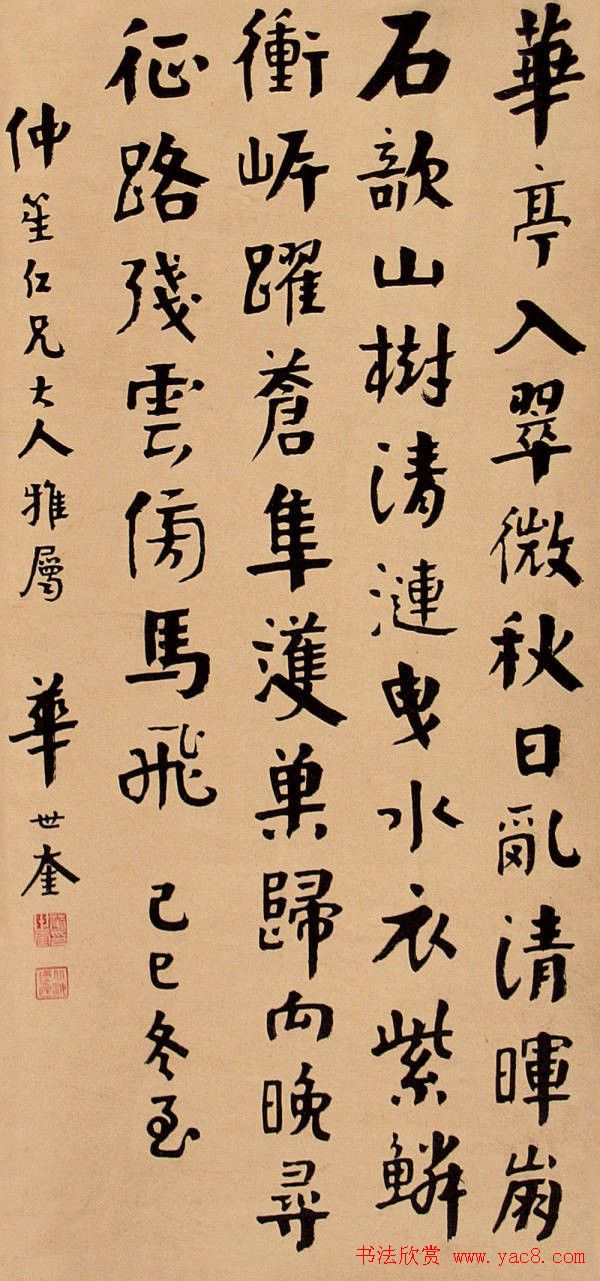 華亭入翠微秋日亂清暉崩
石欹山樹清漣曳水衣紫鱗
衝岸躍蒼隼護巢歸向晚尋
征路殘雲傍馬飛 己巳冬至
仲笙仁兄大人雅屬 華世奎
书法欣赏 www.yac8.com